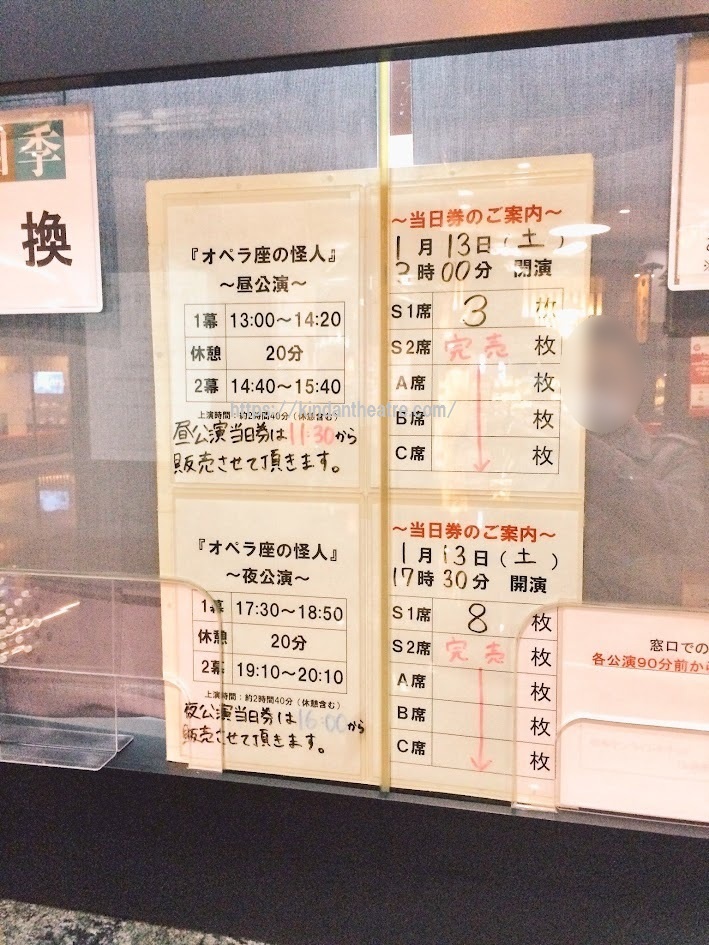 季
換
『オペラ座の怪人』
～昼公演～
1幕 13:00～14:20
休憩 20分
2幕 14:40～15:40
上演時間：約2時間40分（休憩含む）
昼公演当日券は11:30から
販売させて頂きます。
～当日券のご案内～
1月13日（土）
時00分 開演
S1席 3 枚
S2席 完売 枚
A席 枚
B席 枚
C席 枚
https://kingantheatre.com/
『オペラ座の怪人』
～夜公演～
1幕 17:30～18:50
休憩 20分
2幕 19:10～20:10
上演時間：約2時間40分（休憩含む）
夜公演当日券は16:00から
販売させて頂きます。
～当日券のご案内～
1月13日（土）
17時30分 開演
S1席 8 枚
S2席 完売 枚
A席 枚
B席 枚
C席 枚
窓口での
各公演90分前から